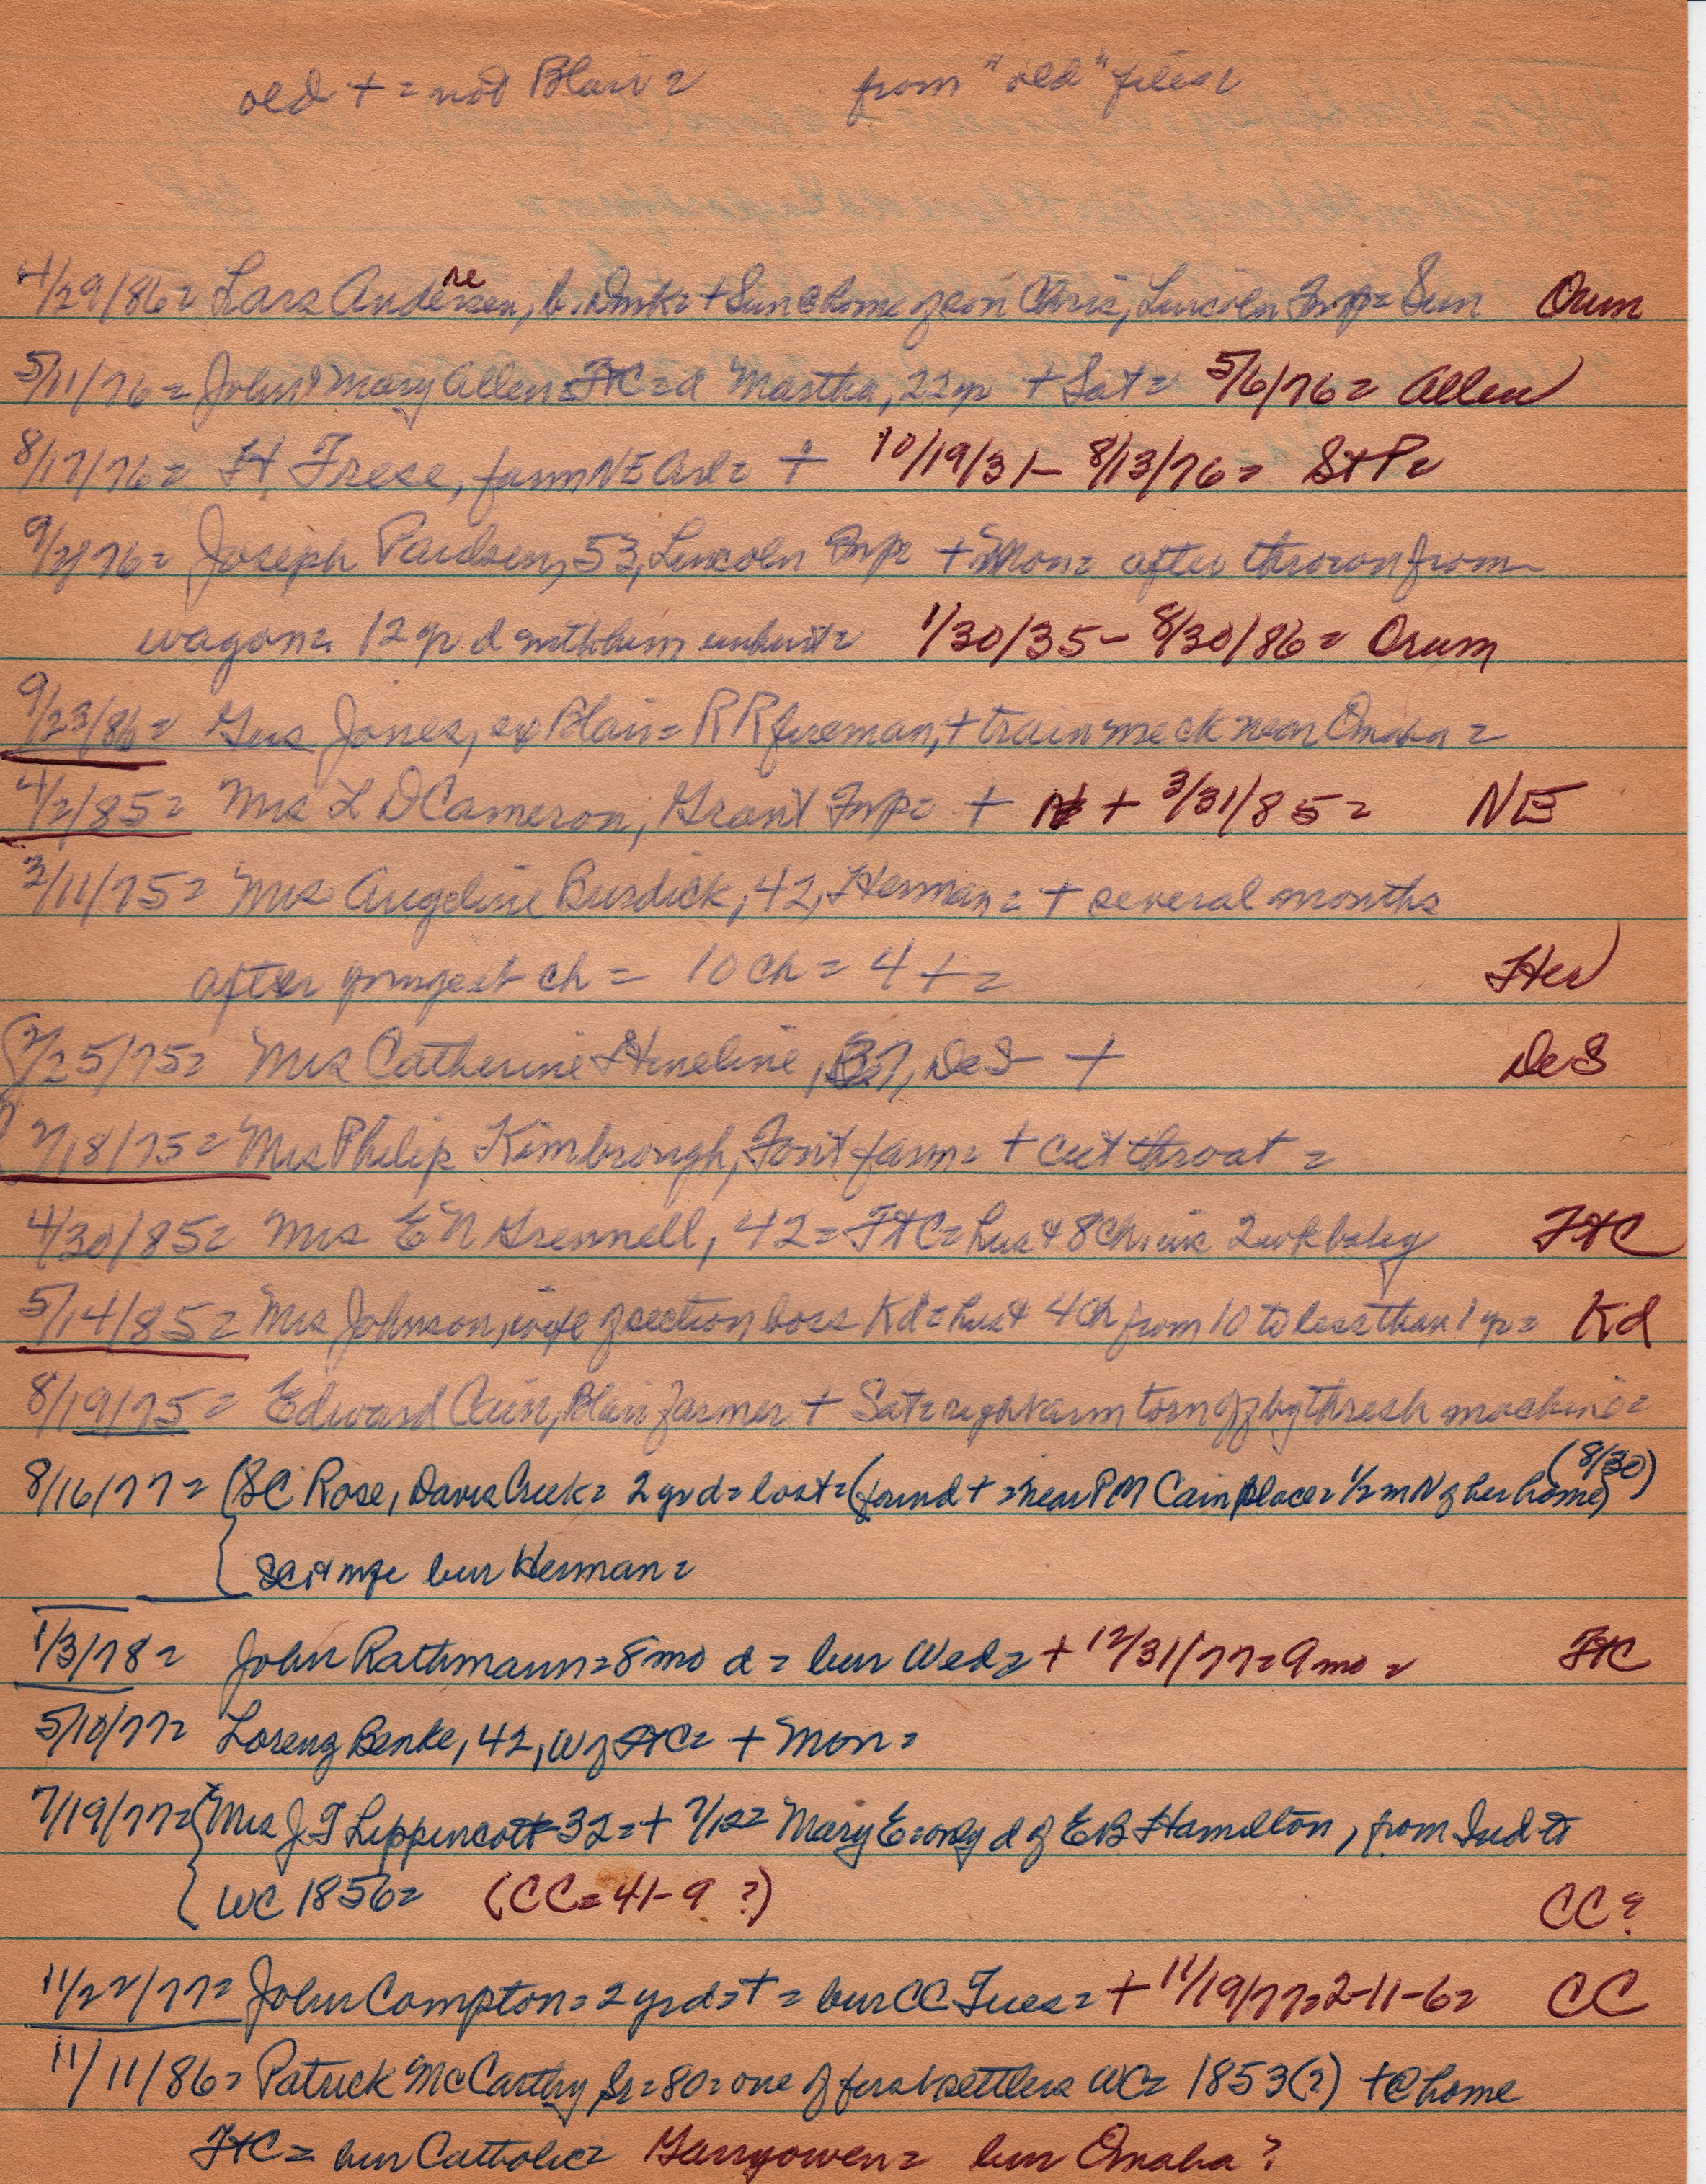 old + = not Blair = from "old" files =
4/29/86 = Lars Andersen, b. Dmk = + Sun @ home of son Chris, Lincoln Twp = Sun Orum
re
5/11/76 = John & Mary Allen = FtC = d Martha, 22 yr + Sat = 5/6/76 = Allen
8/17/76 = H, Frese, farm NE Arl = + 10/19/31 - 8/13/76 = St P =
9/2/76 = Joseph Paulsen, 53, Lincoln Twp = + Mon = after thrown from
wagon = 12 yr d with him unhurt = 1/30/35 - 8/30/86 = Orum
9/23/86 = Gus Jones, ex Blair = RR fireman, + train wreck near Omaha =
4/2/85 = Mrs L D Cameron, Grant Twp = + + 3/31/85 = NE
3/11/75 = Mrs Angeline Burdick, 42, Herman = + several months
after youngest ch = 10 ch = 4 + = Her
2/25/75 = Mrs Catherine Hineline, 37, DeS - + DeS
2/18/75 = Mrs Philip Kimbrough, Font farm = + cut throat =
4/30/85 = Mrs E N Grennell, 42 = FtC = hus & 8 ch, inc 2 wk baby FtC
5/14/85 = Mrs Johnson, wife of section boss Kd = hus & 4 ch from 10 to less than 1 yr = Kd
8/19/75 = Edward Cain, Blair farmer + Sat = right arm torn off by thresh machine =
8/16/77 = (SC Rose, Davis Creek = 2 yr d = lost = (found + = near PM Cain place = 1/2 m N of her home) (8/30)
bur Herman =
1/3/78 = John Rathmann = 8 mo d = bur Wed = + 12/31/77 = 9 mo = FtC
5/10/77 = Lorenz Benke, 42, W of FtC = + Mon =
7/19/77 = Mrs J T Lippincott 32 = + 7/12 = Mary E = only d of EB Hamilton, from Ind to
WC 1856 = (CC = 41-9 ?) CC ?
11/22/77 = John Compton = 2 yr d = + = bur CC Tues = + 11/19/77 = 2-11-6 = CC
11/11/86 = Patrick McCarthy Sr = 80 = one of first settlers WC = 1853(?) + @ home
FtC = bur Catholic = Garryowen = bur Omaha ?